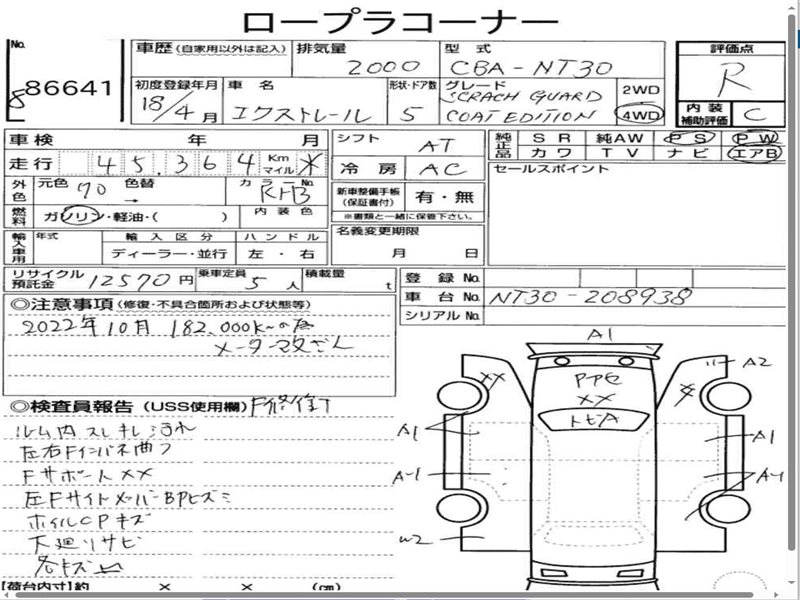 ロープラコーナー
No. 86641
車歴 (自家用以外は記入) 排気量 2000 型式 CBA-NT30
評価点 R
内装補助評価 C
初度登録年月 18/4月 車名 エクストレール 形状・ドア数 5 グレード SCRACH GUARD COAT EDITION 2WD 4WD
車検 年 月 シフト AT
純正品 SR 純AW PS PW
カワ TV ナビ エアB
走行 45,364 Km マイル ✕ 冷房 AC
セールスポイント
外色 元色 70 色替 → カラーNo. KH3
新車整備手帳 (保証書付) 有・無
※書類と一緒に保管下さい。
燃料 ガソリン・軽油・( ) 内装色
輸入車用 年式 輸入区分 ハンドル
ディーラー・並行 左・右
名義変更期限 月 日
リサイクル預託金 12570円 乗車定員 5人 積載量 t
登録No.
車台No. NT30-208938
シリアルNo.
◎注意事項 (修復・不具合箇所および状態等)
2022年10月 182,000K
メーター改ざん
◎検査員報告 (USS使用欄) F修復
ルーム内スレキレ汚れ
左右Fインパネ曲
Fサポート××
左FサイドメンバーBPヒズミ
ホイルCPキズ
下廻りサビ
各キズ
【荷台内寸】約 × × (cm)
A1
×× PP ×× A2
トビA
A1 A1
A-1
W2